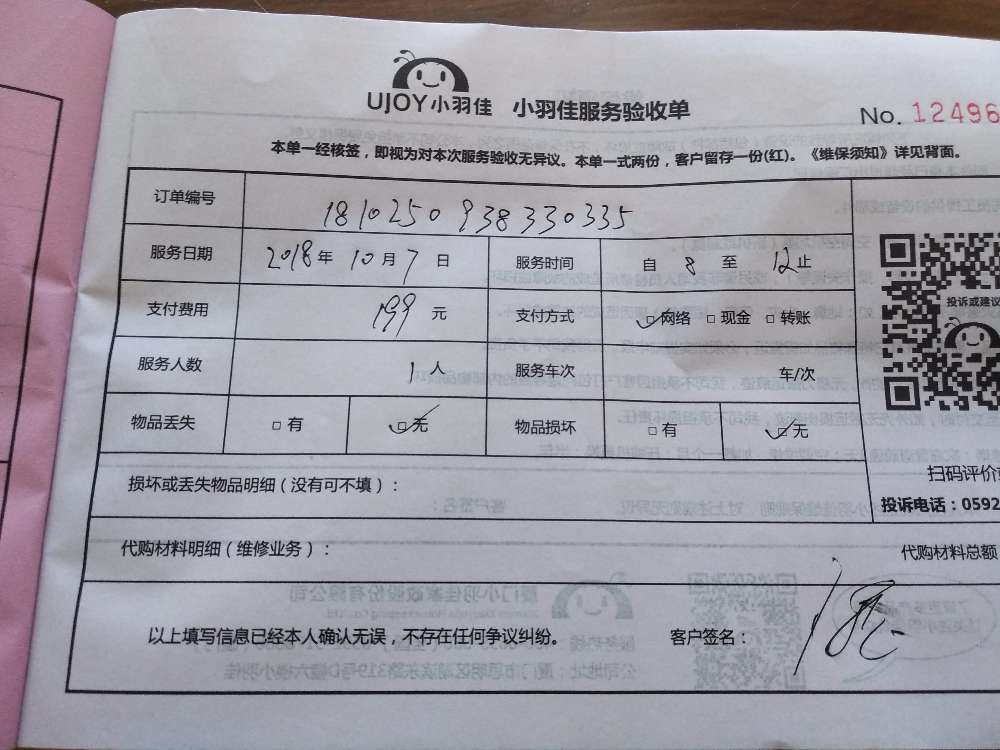 UJOY小羽佳 小羽佳服务验收单
No. 12496
本单一经核签，即视为对本次服务验收无异议。本单一式两份，客户留存一份(红)。《维保须知》详见背面。
订单编号 1810250938330335
服务日期 2018年 10月7日 服务时间 自 8 至 12止
支付费用 199 元 支付方式 网络 现金 转账
投诉或建议
服务人数 1人 服务车次 车/次
物品丢失 有 无 物品损坏 有 无
扫码评价
损坏或丢失物品明细（没有可不填）：
投诉电话：0592
代购材料明细（维修业务）： 代购材料总额
以上填写信息已经本人确认无误，不存在任何争议纠纷。 客户签名：